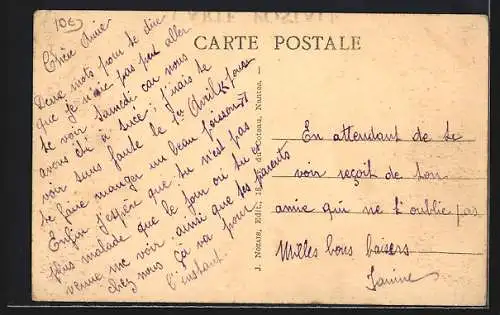 10€
CARTE POSTALE
Chère Amie
Deux mots pour te dire
que je n'aie pas put aller
te voir Samedi car nous
avons été à Sucé; j'irais te
voir sans faute le 1er Avril pour
te faire manger un beau poisson
Enfin j'espère que tu n'est pas
plus malade que le jour où tu es
venue me voir ainsi que tes parents
chez nous ça va pour
l'instant.
J. Nozais, Edit., du Coteau, Nantes.
En attendant de te
voir reçoit de ton
amie qui ne t'oublie pas
Milles bons baisers
Janine